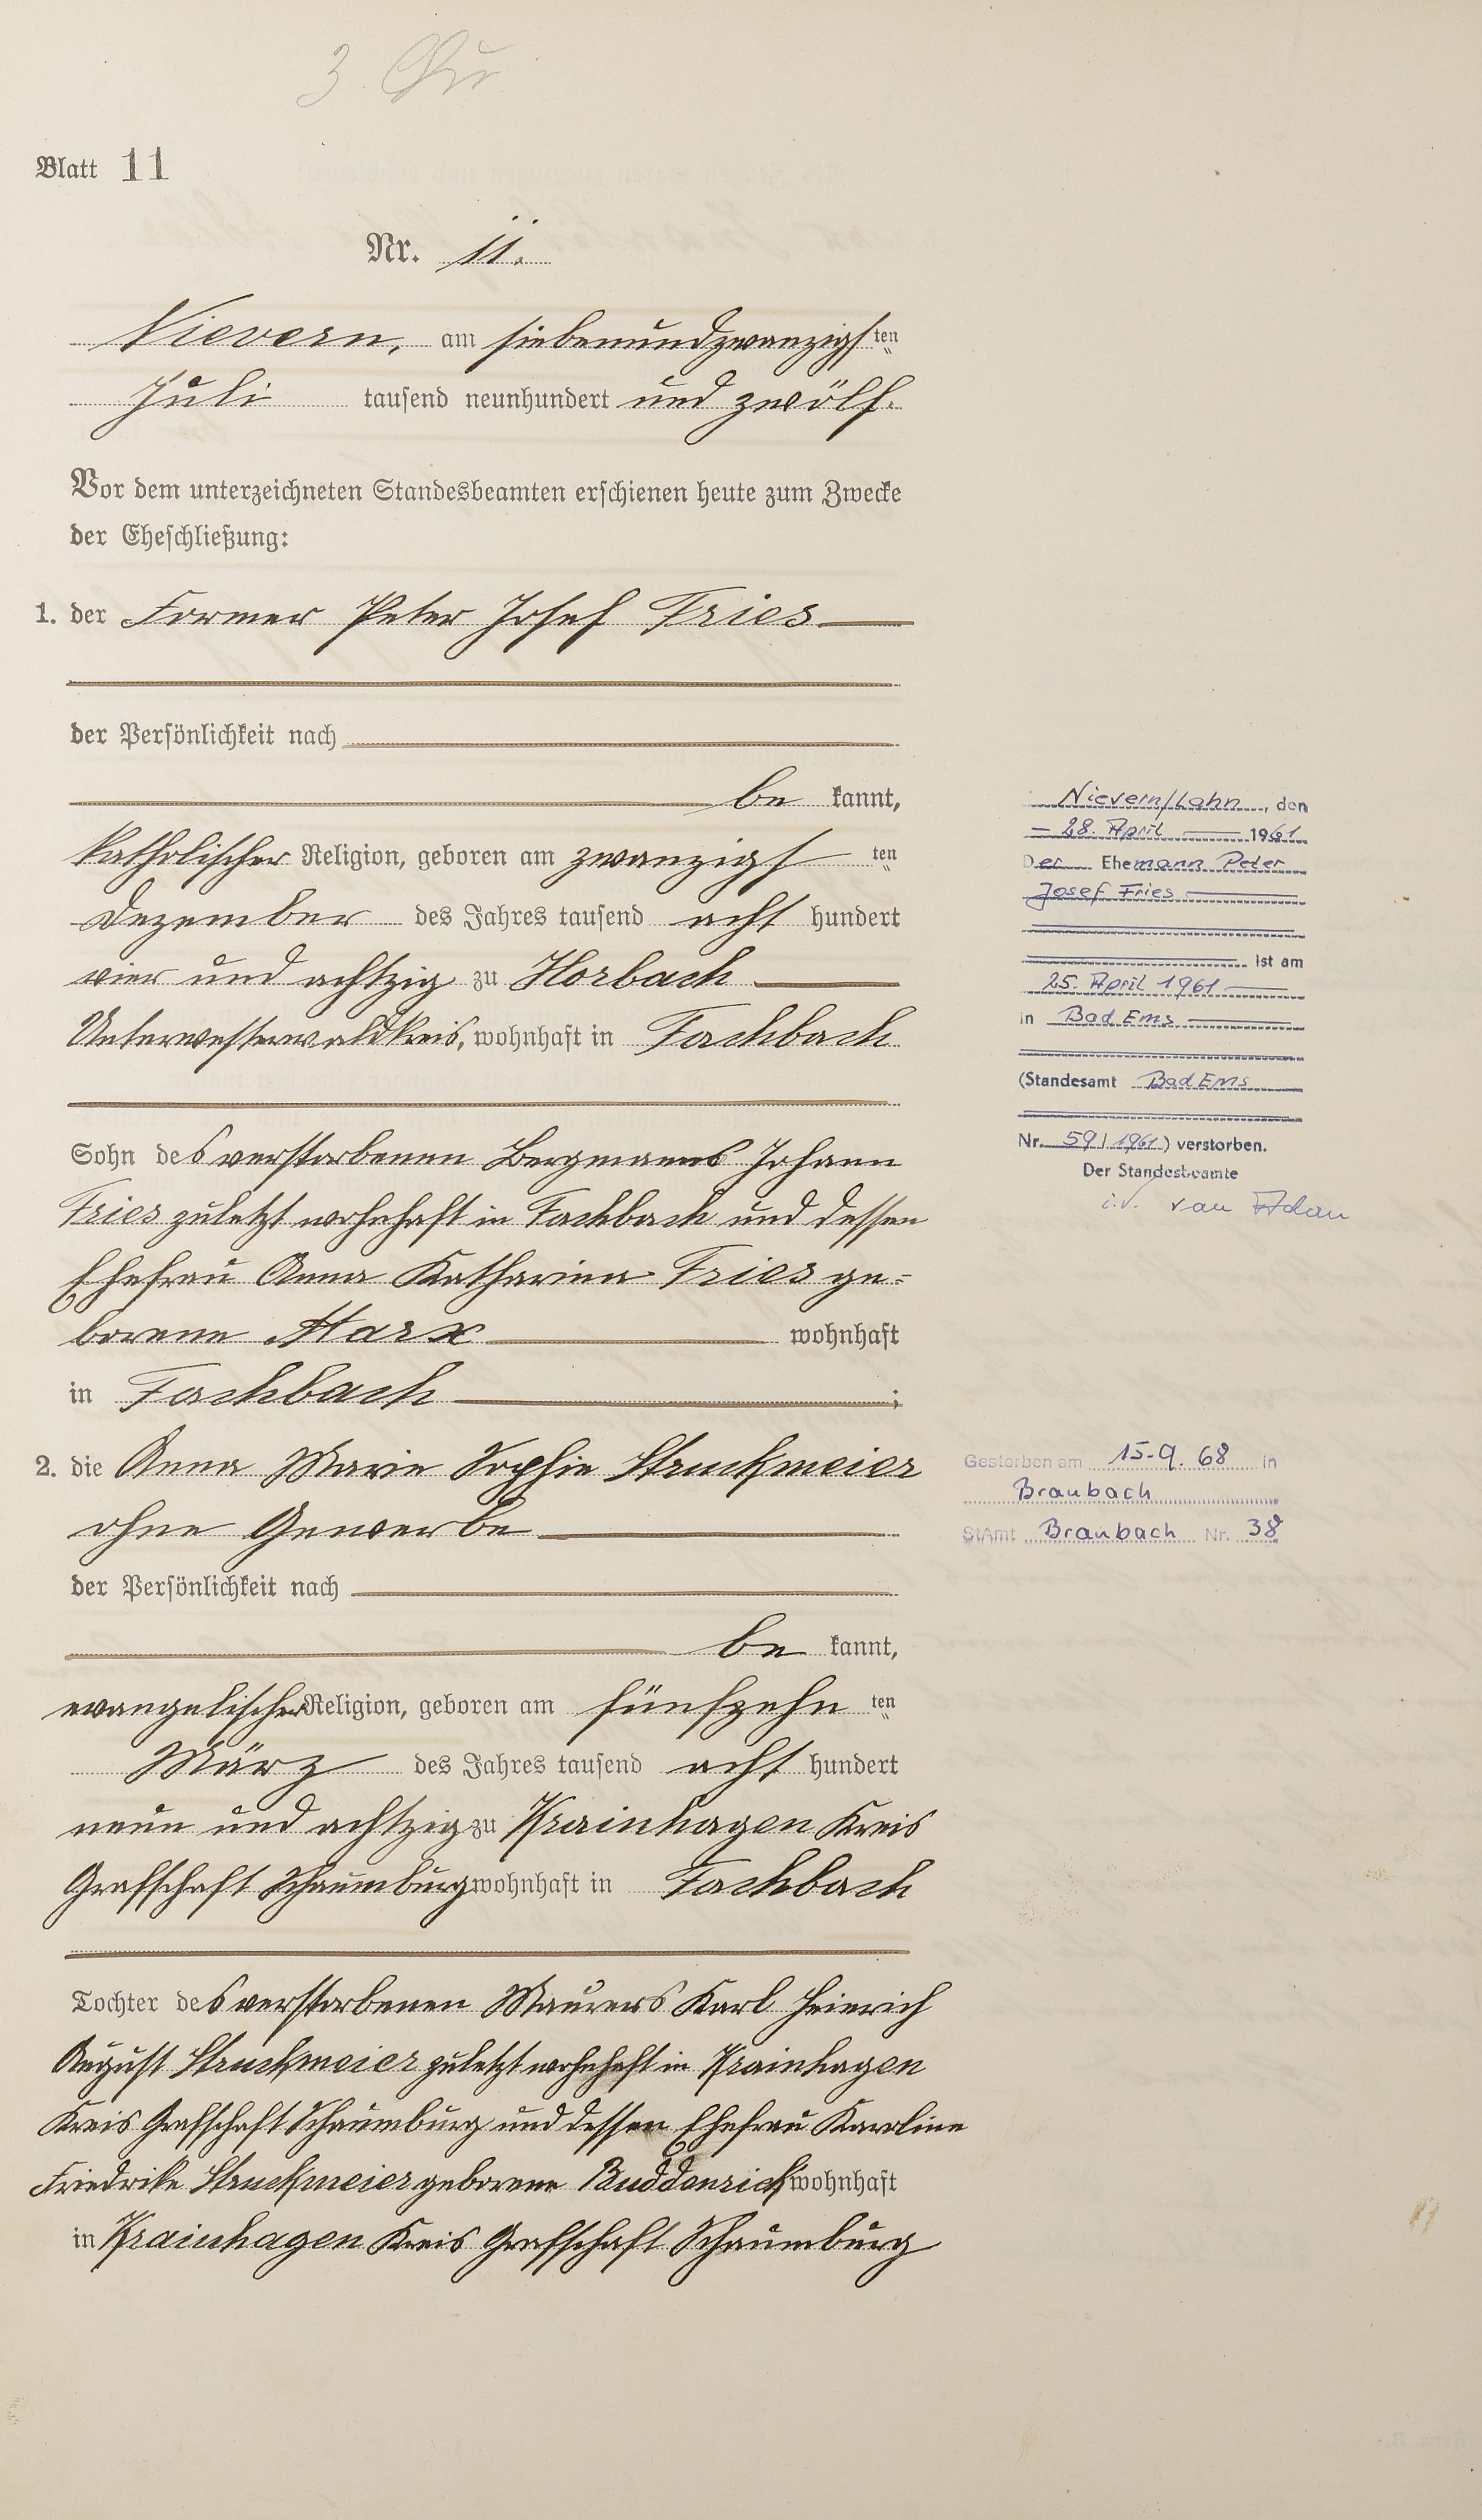 Blatt 11
Nr. 11.
Nievern, am siebenundzwanzigsten
Juli tausend neunhundert und zwölf.
Vor dem unterzeichneten Standesbeamten erschienen heute zum Zwecke
der Eheschließung:
1. der Former Peter Josef Fries
der Persönlichkeit nach
be kannt,
katholischer Religion, geboren am zwanzigsten
Dezember des Jahres tausend acht hundert
vier und achtzig zu Horbach
Unterwesterwaldkreis, wohnhaft in Fachbach
Sohn des verstorbenen Bergmanns Johann
Fries zuletzt wohnhaft in Fachbach und dessen
Ehefrau Anna Katharina Fries ge=
borene Marx wohnhaft
in Fachbach ;
2. die Anna Marie Sophie Struckmeier
ohne Gewerbe
der Persönlichkeit nach
be kannt,
evangelischer Religion, geboren am fünfzehnten
März des Jahres tausend acht hundert
neun und achtzig zu Krainhagen Kreis
Grafschaft Schaumburg wohnhaft in Fachbach
Tochter des verstorbenen Maurers Karl Heinrich
August Struckmeier zuletzt wohnhaft in Krainhagen
Kreis Grafschaft Schaumburg und dessen Ehefrau Karoline
Friedrike Struckmeier geborene Buddensiek wohnhaft
in Krainhagen Kreis Grafschaft Schaumburg
Nievern/Lahn, den
28. April 1961
Der Ehemann Peter
Josef Fries
ist am
25. April 1961
in Bad Ems
(Standesamt Bad Ems
Nr. 59/1961) verstorben.
Der Standesbeamte
i.V.
Gestorben am 15.9.68 in
Braubach
StAmt Braubach Nr. 38